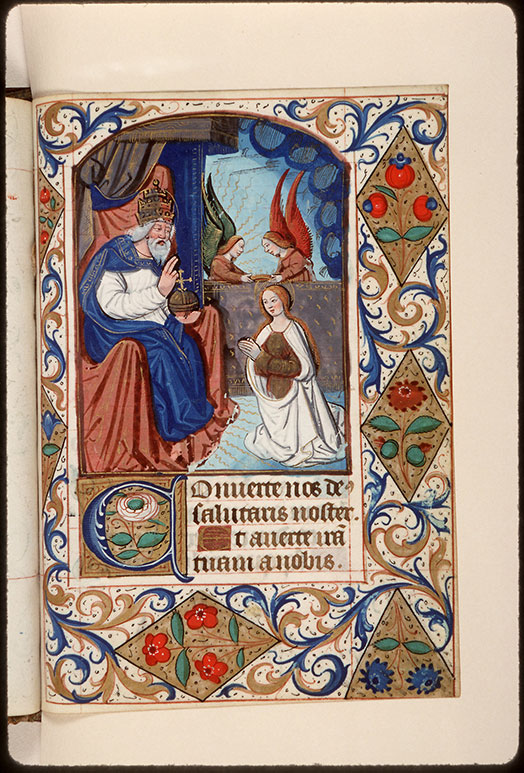 Conuerte nos de⁹
salutaris noster.
Et auerte irã
tuam a nobis.